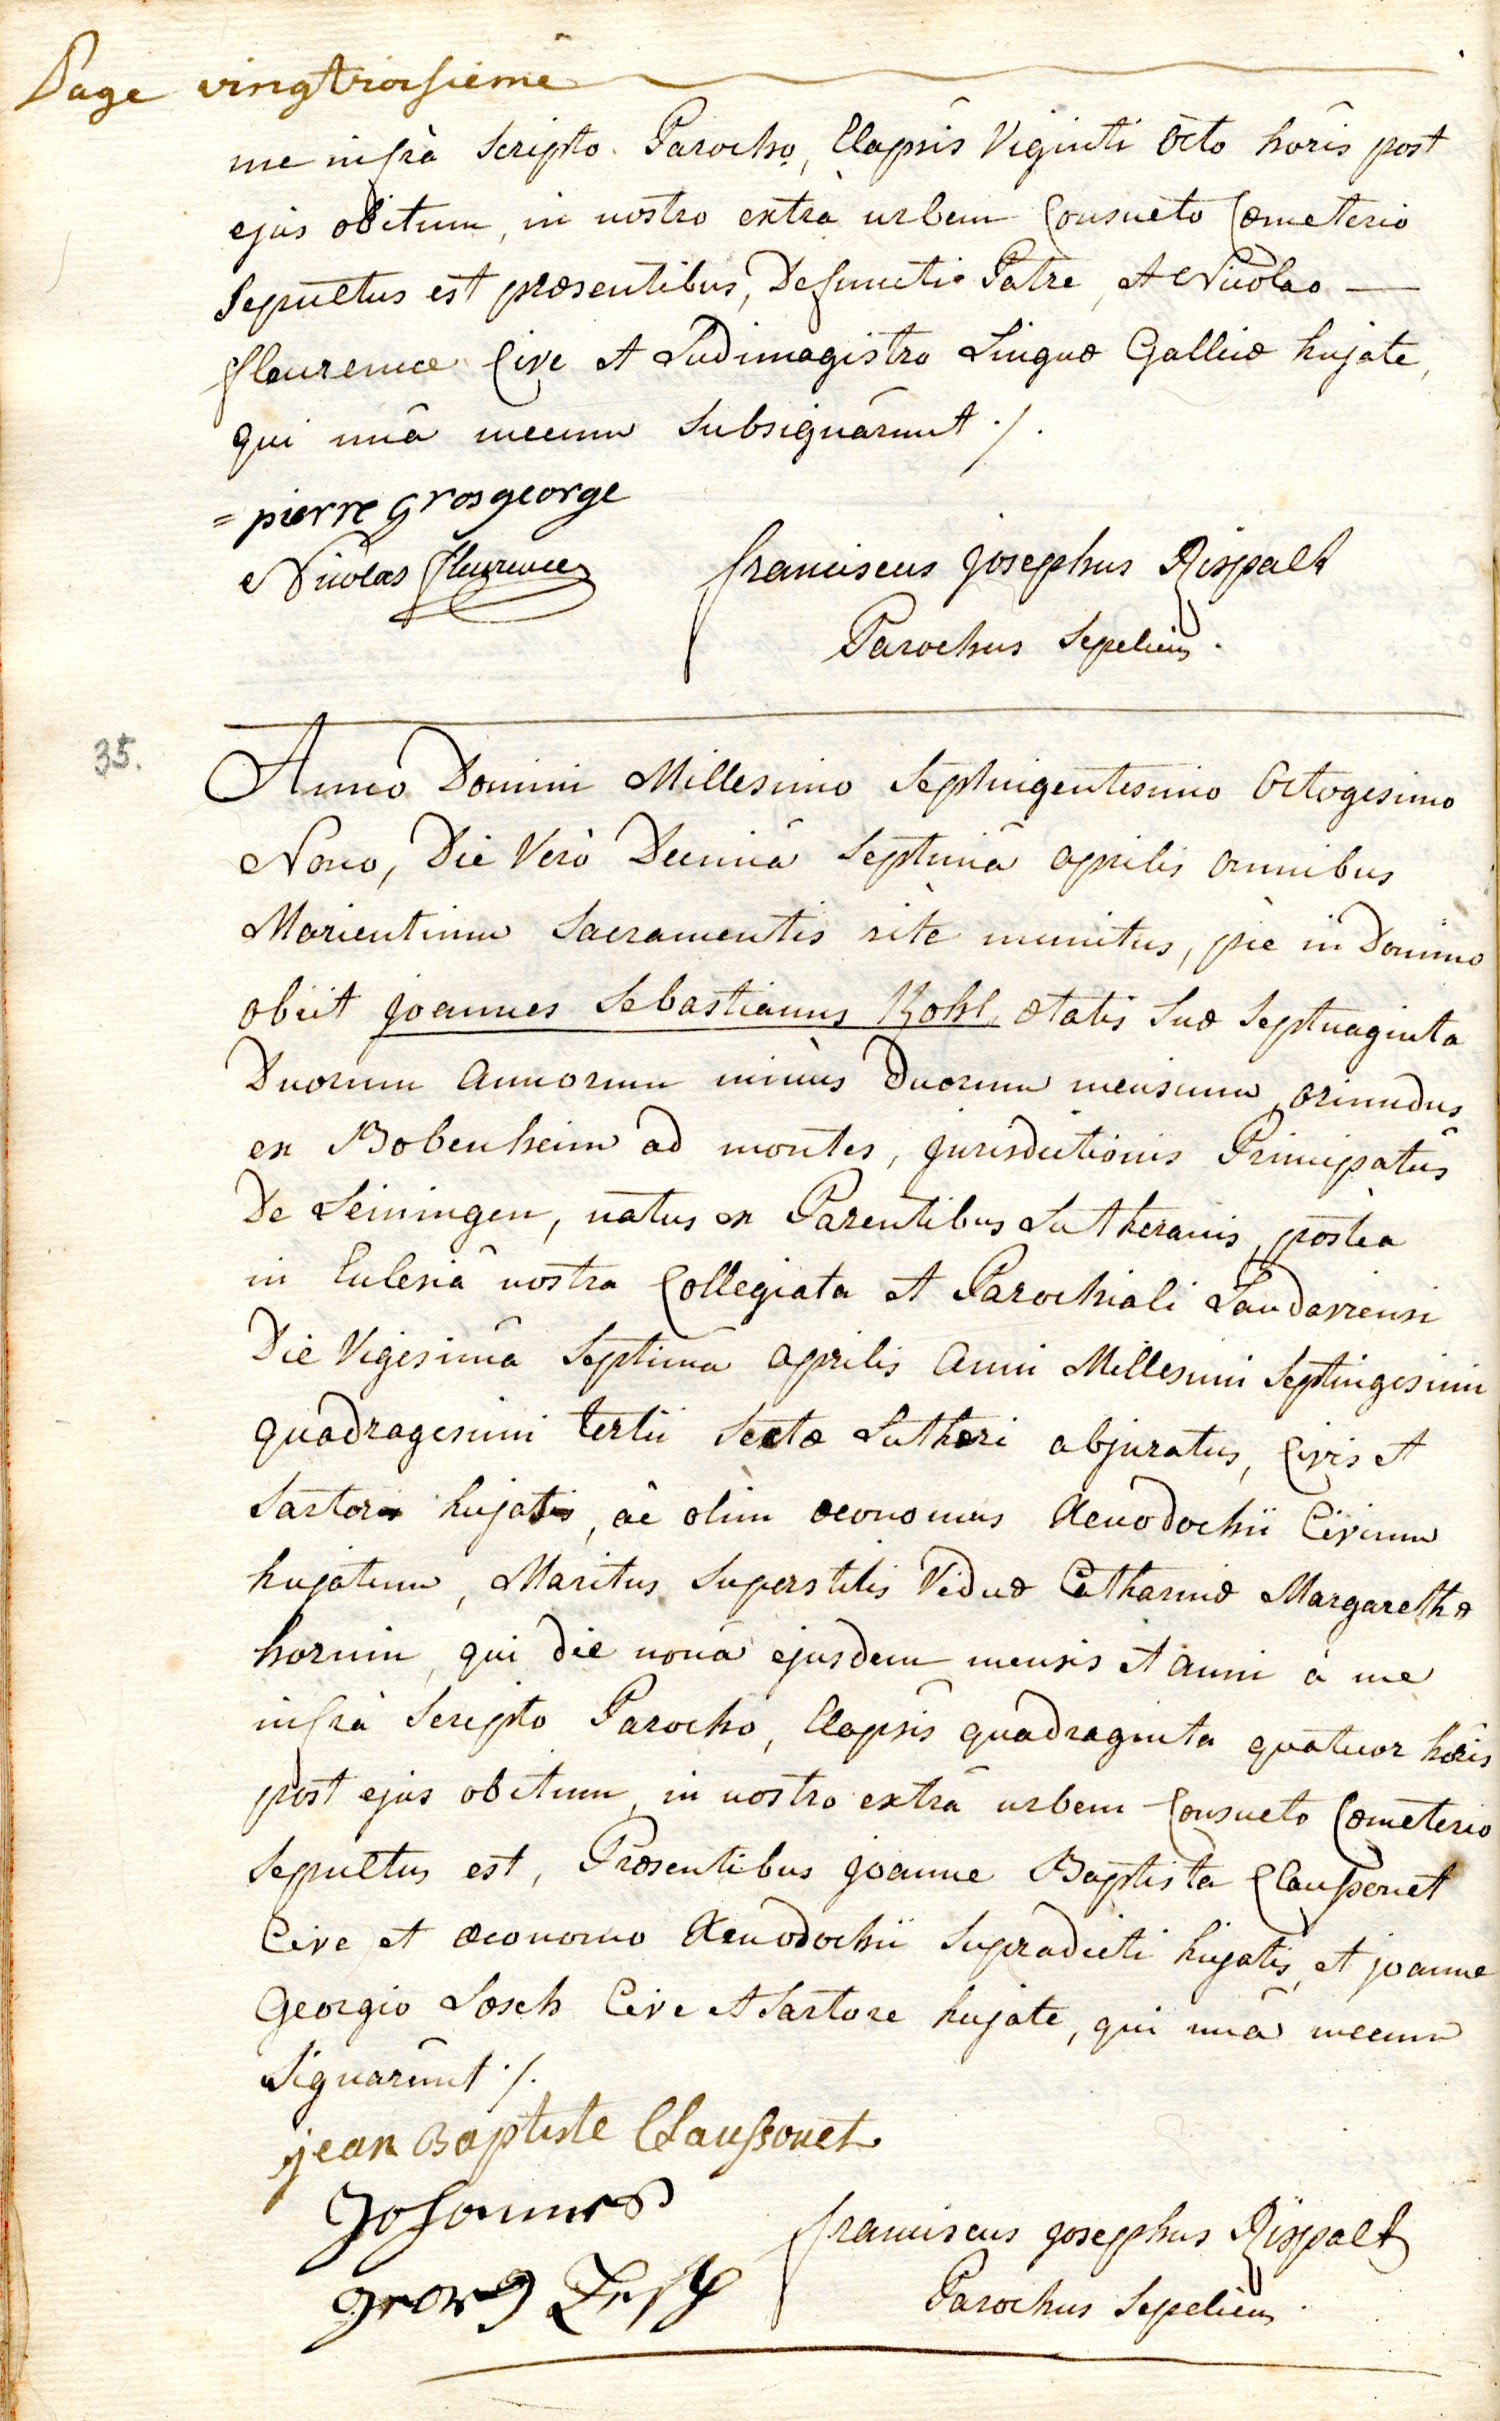 Page vingtroisiême
me infrà Scripto Parocho, Elapsîs Viginti Octo horîs post
ejus obitum, in nostro extrà urbem Consueto Cœmeterio
Sepultus est præsentibus, Defuncti Patre, et Nicolao —
fleurence Cive et Ludimagistro Linguæ Gallicæ hujate,
qui unâ mecum Subsignârunt ./.
= pierre grosgeorge
Nicolas fleurence
franciscus josephus Rispalt
Parochus Sepeliens.
35.
Anno Domini Millesimo Septuigentesimo Octogesimo
Nono, Die Verò Decimâ Septimâ aprilis omnibus
Morientium Sacramentis ritè munitus, piè in Domino
obiit joannes Sebastianus Kohl, ætatis Suæ Septuaginta
Duorum annorum minùs duorum mensium, oriundus
ex Bobenheim ad montes, jurisdictionis Principatûs
De Leiningen, natus ex Parentibus Lutheranis, posteà
in Eclesiâ nostra Collegiata et Parochiali Landaviensi
Die Vigesimâ Septimâ aprilis anni Millesimi Septingesimi
quadragesimi tertii Sectæ Lutheri abjuratus, Civis et
Sartor hujatis, ac olim œconomus Xenodochii Civium
hujatum, Maritus Superstitis Viduæ Catharinæ Margarethæ
hornin, qui die nonâ ejusdem mensis et anni à me
infrà Scripto Parocho, Elapsîs quadraginta quatuor horis
post ejus obitum, in nostro extrâ urbem Consueto Cœmeterio
Sepultus est, Præsentibus joanne Baptista Claussonet
Cive et œconomo Xenodochii Supradicti hujatis, et joanne
Georgio Lösch Cive et Sartore hujate, qui unâ mecum
Signarûnt ./.
jean Baptiste Claussonet
Johannes
georg Lesch
franciscus josephus Rispalt
Parochus Sepeliens.